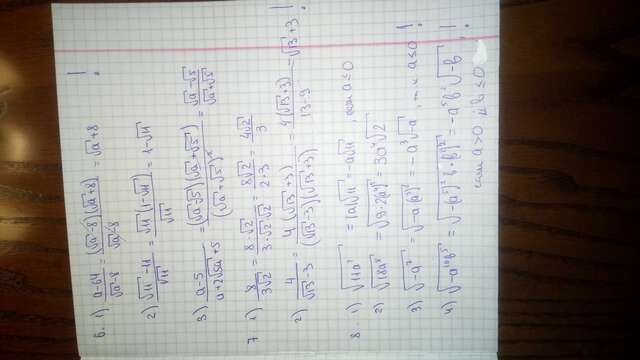 6. 1) a-64/√a-8 = (√a-8)(√a+8)/√a-8 = √a+8
2) √11-11/√11 = √11(1-√11)/√11 = 1-√11
3) a-5/a+2√5a+5 = (√a-√5)(√a+√5)/(√a+√5)² = √a-√5/√a+√5
7 1) 8/3√2 = 8·√2/3·√2·√2 = 8√2/2·3 = 4√2/3
2) 4/√13-3 = 4(√13+3)/(√13-3)(√13+3) = 4(√13+3)/13-9 = √13+3
8 1) √11a² = |a|√11 = -a√11 если a≤0
2) √18a⁸ = √9·2(a⁴)² = 3a⁴√2
3) √-a⁷ = √-a(a³)² = -a³√-a, т.к a≤0
4) √-a¹⁰b⁵ = -a⁵b²√-b
если a>0 и b≤0